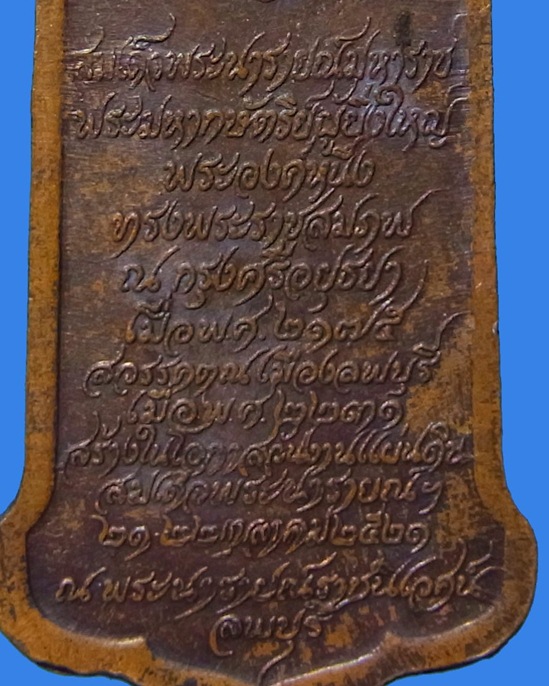 สมเด็จพระนารายณ์มหาราช
พระมหากษัตริย์ผู้ยิ่งใหญ่
พระองค์หนึ่ง
ทรงพระราชสมภพ
ณ กรุงศรีอยุธยา
เมื่อ พ.ศ. ๒๑๗๕
สวรรคต ณ เมืองลพบุรี
เมื่อ พ.ศ. ๒๒๓๑
สร้างในโอกาสวันงานแผ่นดิน
สมเด็จพระนารายณ์ฯ
๒๑-๒๒ ๒๕๒๑
ณ พระนารายณ์ราชนิเวศน์
ลพบุรี